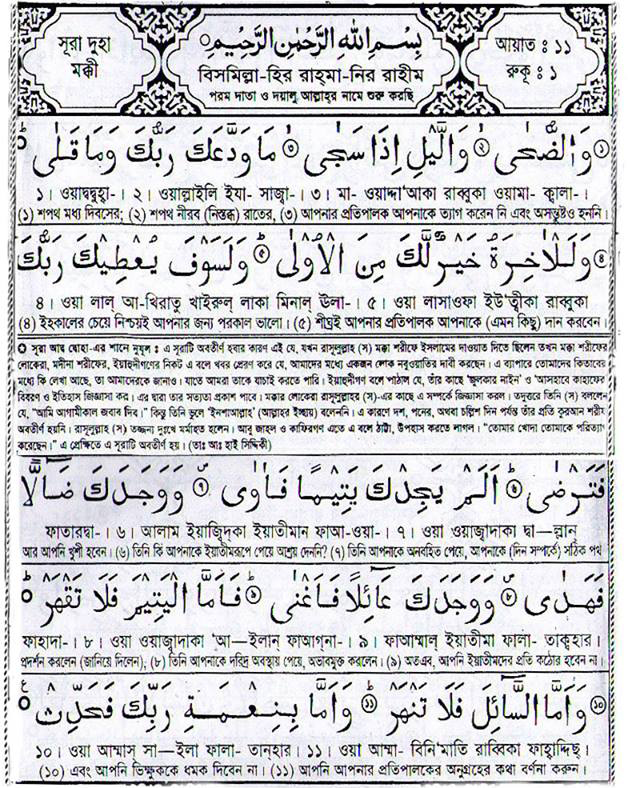 সূরা দুহা
মক্কী
بِسْمِ اللهِ الرَّحْمٰنِ الرَّحِيْمِ
বিসমিল্লা-হির রাহ়মা-নির রাহীম
পরম দাতা ও দয়ালু আল্লাহর নামে শুরু করছি
আয়াত : ১১
রুকূ : ১
وَالضُّحٰى ② وَالَّيْلِ اِذَا سَجٰى ③ مَا وَدَّعَكَ رَبُّكَ وَمَا قَلٰى
১। ওয়াদ্বদ্বুহা-। ২। ওয়াল্লাইলি ইযা- সাজ্বা-। ৩। মা- ওয়াদ্দা'আকা রাব্বুকা ওয়ামা- ক্বালা-।
(১) শপথ মধ্য দিবসের; (২) শপথ নীরব (নিস্তব্ধ) রাতের, (৩) আপনার প্রতিপালক আপনাকে ত্যাগ করেন নি এবং অসন্তুষ্টও হননি।
وَلَلْاٰخِرَةُ خَيْرٌ لَّكَ مِنَ الْاُوْلٰى ⑤ وَلَسَوْفَ يُعْطِيْكَ رَبُّكَ
৪। ওয়া লাল্ আ-খিরাতু খাইরুল্ লাকা মিনাল্ ঊলা-। ৫। ওয়া লাসাওফা ইউ'ত্বীকা রাব্বুকা
(৪) ইহকালের চেয়ে নিশ্চয়ই আপনার জন্য পরকাল ভালো। (৫) শীঘ্রই আপনার প্রতিপালক আপনাকে (এমন কিছু) দান করবেন।
সূরা আদ্ব দ্বোহা-এর শানে নুযূল : এ সূরাটি অবতীর্ণ হবার কারণ এই যে, যখন রাসূলুল্লাহ (স) মক্কা শরীফে ইসলামের দাওয়াত দিতে ছিলেন তখন মক্কা শরীফের
লোকেরা, মদীনা শরীফের, ইয়াহুদীগণের নিকট এ বলে খবর প্রেরণ করে যে, আমাদের মধ্যে একজন লোক নবুওয়াতির দাবী করছেন। এ ব্যাপারে তোমাদের কিতাবের
মধ্যে কি লেখা আছে, তা আমাদেরকে জানাও। যাতে আমরা তাকে যাচাই করতে পারি। ইয়াহুদীগণ বলে পাঠাল যে, তাঁর কাছে 'জুলকার নাইন' ও 'আসহাবে কাহাফের
বিবরণ ও ইতিহাস জিজ্ঞাসা কর। এর দ্বারা তার সত্যতা প্রকাশ পাবে। মক্কার লোকেরা রাসূলুল্লাহ (স)-এর কাছে এ সম্পর্কে জিজ্ঞাসা করল। তদুত্তরে তিনি (স) বললেন
যে, "আমি আগামীকাল জবাব দিব।" কিন্তু তিনি ভুলে 'ইনশাআল্লাহ' (আল্লাহর ইচ্ছায়) বলেননি। এ কারণে দশ, পনের, অথবা চল্লিশ দিন পর্যন্ত তাঁর প্রতি কুরআন শরীফ
অবতীর্ণ হয়নি। রাসূলুল্লাহ (স) তজ্জন্য দুঃখে মর্মাহত হলেন। আবু জাহল ও কাফিরগণ এতে এ বলে ঠাট্টা, উপহাস করতে লাগল। "তোমার খোদা তোমাকে পরিত্যাগ
করেছেন।" এ প্রেক্ষিতে এ সূরাটি অবতীর্ণ হয়। (তাঃ আঃ হাই সিদ্দিকী)
فَتَرْضٰى ⑥ اَلَمْ يَجِدْكَ يَتِيْمًا فَاٰوٰى ⑦ وَوَجَدَكَ ضَآلًّا
ফাতারদ্বা-। ৬। আলাম ইয়াজ্বিদ্‌কা ইয়াতীমান ফাআ-ওয়া-। ৭। ওয়া ওয়াজ্বাদাকা দ্বা—ল্লান্
আর আপনি খুশী হবেন। (৬) তিনি কি আপনাকে ইয়াতীমরূপে পেয়ে আশ্রয় দেননি? (৭) তিনি আপনাকে অনবহিত পেয়ে, আপনাকে (দিন সম্পর্কে) সঠিক পথ
فَهَدٰى ⑧ وَوَجَدَكَ عَآئِلًا فَاَغْنٰى ⑨ فَاَمَّا الْيَتِيْمَ فَلَا تَقْهَرْ
ফাহাদা-। ৮। ওয়া ওয়াজ্বাদাকা 'আ—ইলান্ ফাআগ্‌না-। ৯। ফাআম্মাল্ ইয়াতীমা ফালা- তাক্ব্‌হার।
প্রদর্শন করলেন (জানিয়ে দিলেন), (৮) তিনি আপনাকে দরিদ্র অবস্থায় পেয়ে, অভাবমুক্ত করলেন। (৯) অতএব, আপনি ইয়াতীমদের প্রতি কঠোর হবেন না।
⑩ وَاَمَّا السَّآئِلَ فَلَا تَنْهَرْ ⑪ وَاَمَّا بِنِعْمَةِ رَبِّكَ فَحَدِّثْ
১০। ওয়া আম্মাস্ সা—ইলা ফালা- তান্‌হার। ১১। ওয়া আম্মা- বিনি'মাতি রাব্বিকা ফাহাদ্দিছ্।
(১০) এবং আপনি ভিক্ষুককে ধমক দিবেন না। (১১) আপনি আপনার প্রতিপালকের অনুগ্রহের কথা বর্ণনা করুন।